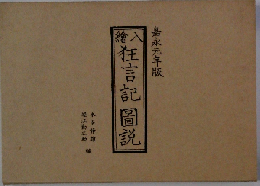 嘉永元年版
繪入
狂言記圖說
編